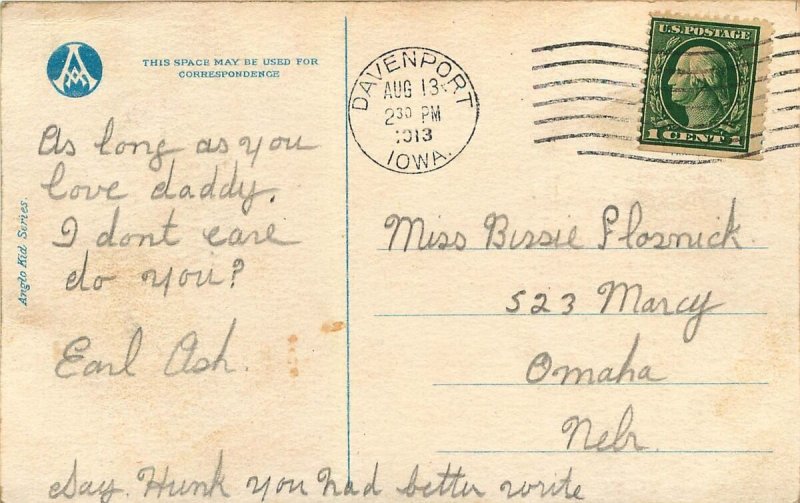 THIS SPACE MAY BE USED FOR
CORRESPONDENCE
As long as you
love daddy.
I dont care
do you?
Earl Ash.
Say. Hunk you had better write
Anglo Kid Series.
DAVENPORT
AUG 13
2 30 PM
1913
IOWA.
U.S. POSTAGE
1 CENT 1
Miss Bissie Plosnick
523 Marcy
Omaha
Nebr.